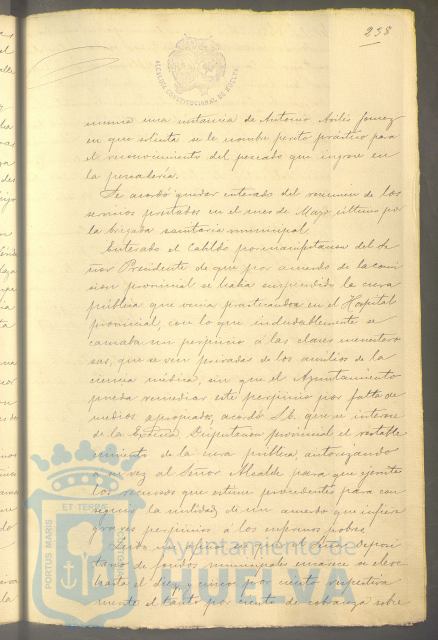 238
ALCALDIA CONSTITUCIONAL DE HUELVA
una instancia de Antonio Avilés
en que solicita se le nombre perito práctico para
el reconocimiento del pescado que ingrese en
la pescadería.
Se acordó quedar enterado del resumen de los
servicios prestados en el mes de Mayo último por
la brigada sanitaria municipal
Enterado el Cabildo por manifestacion del Se
ñor Presidente de que por acuerdo de la comi
sion provincial se habia suspendido la cura
pública que venia practicandose en el Hospital
provincial, con lo que indudablemente se
causaba un perjuicio á las clases menestero
sas, que se ven privadas de los auxilios de la
ciencia médica, sin que el Ayuntamiento
pueda remediar este perjuicio por falta de
medios apropiados, acordó S.E. que se interese
de la Excma Diputacion provincial el restable
cimiento de la cura pública, autorizando
á su vez al Señor Alcalde para que ejercite
los recursos que estime procedentes para con
seguir la nulidad de un acuerdo que infiere
graves perjuicios á los enfermos pobres
fondos municipales se eleve
hasta el diez y cinco por ciento respectiva
mente el tanto por ciento de cobranza sobre
PORTUS MARIS
ET TERRE
Ayuntamiento de
HUELVA